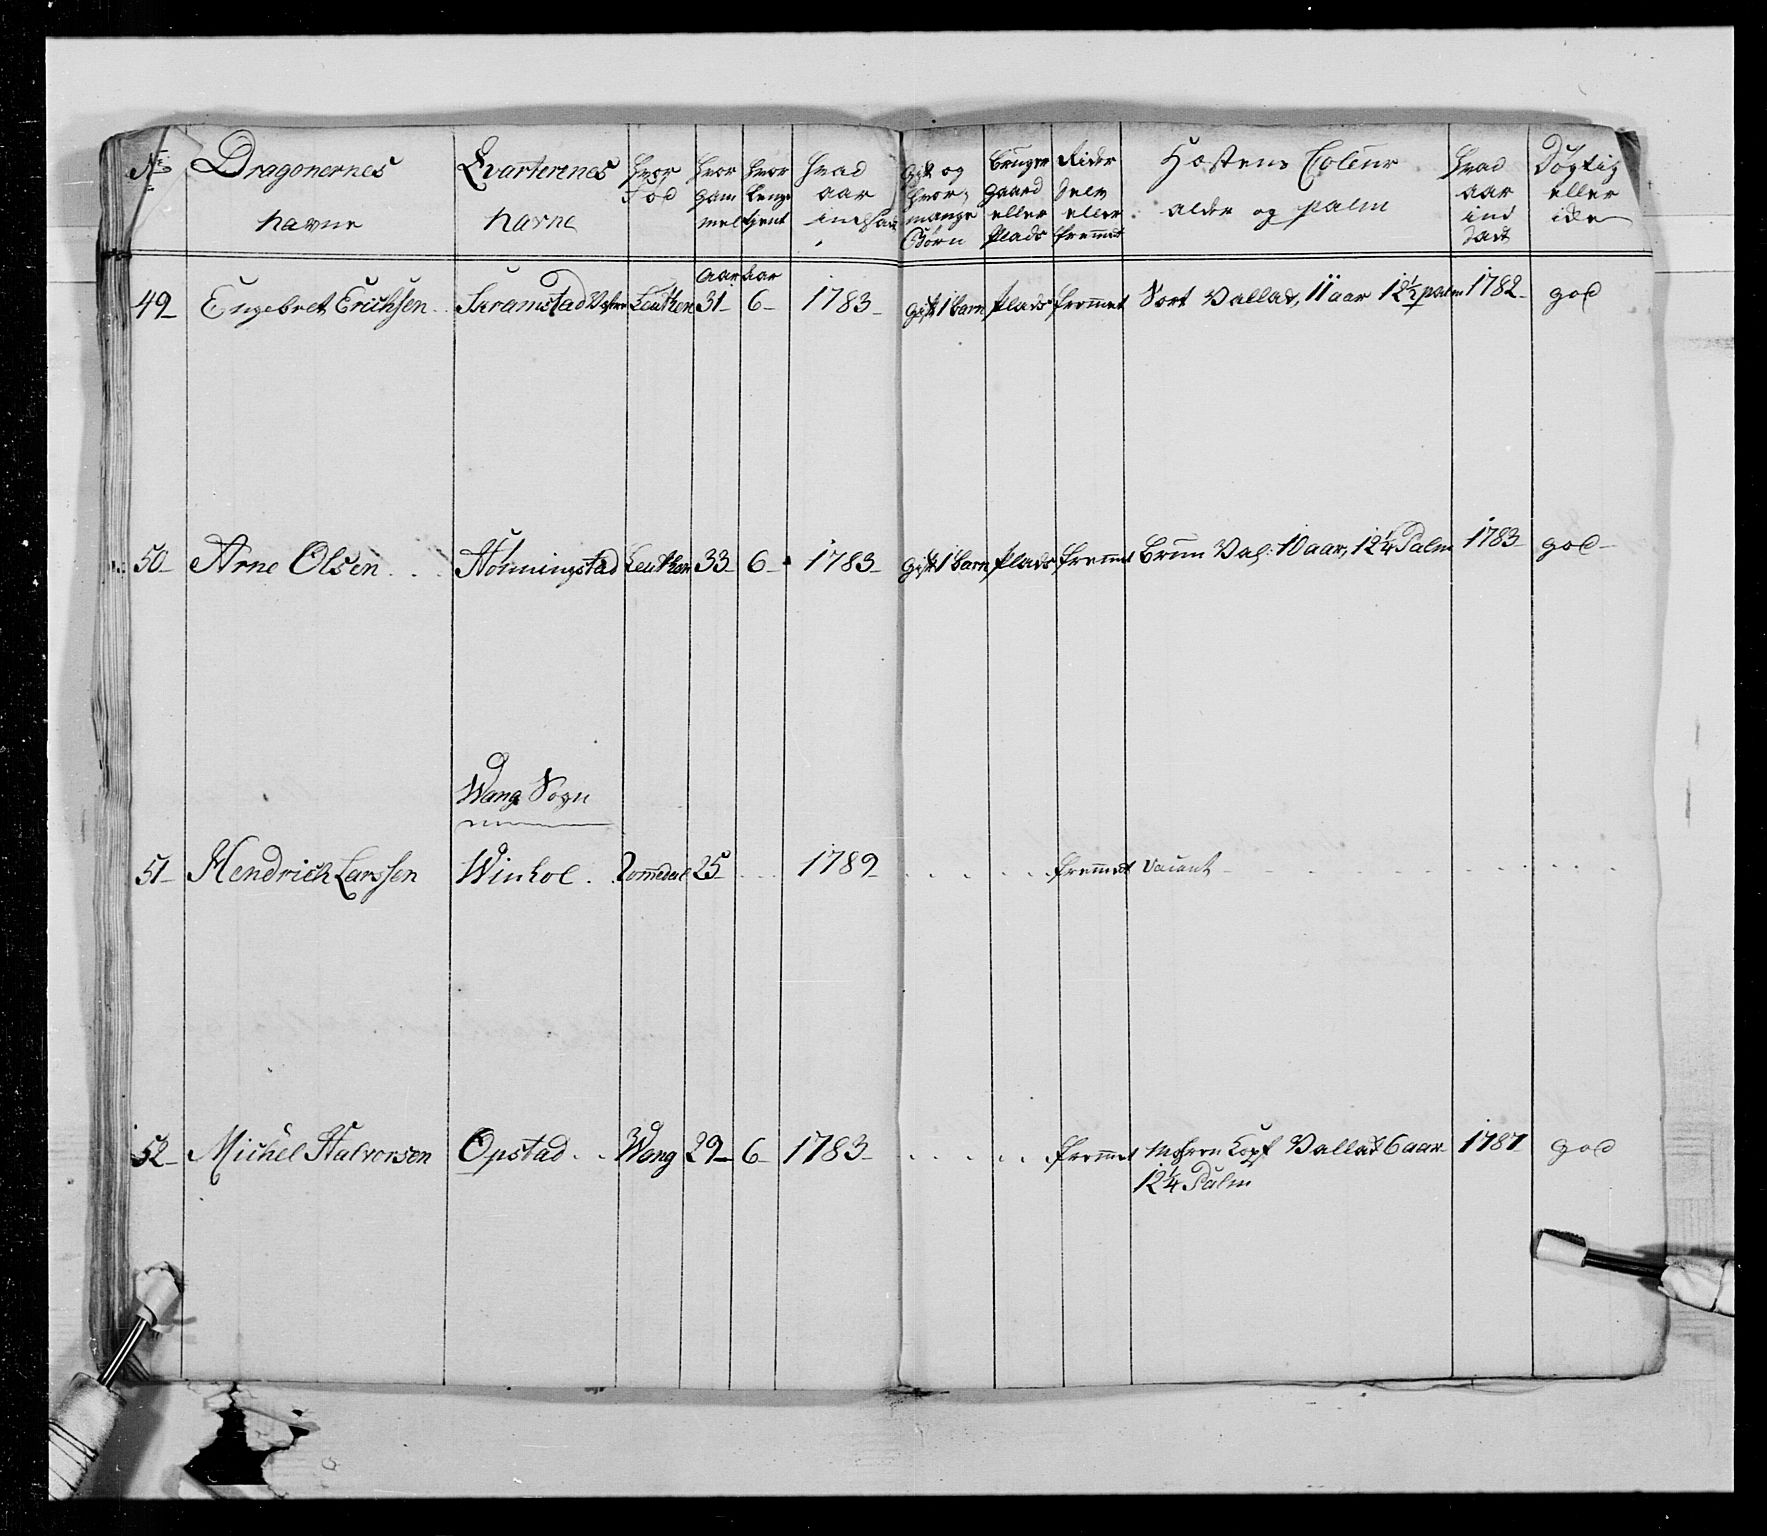 No | Dragonernes havne | Qvarterenes havne | Hvor fød | Hvor gam mel | Hvor lenge tient | Hvad aar indhau | Gift og hvor mange Børn | bruger gaard eller Plads | Rider selv eller fremmet | Hæstens Coleur alder og palm | Hvad aar ind sadt | Døgtig eller ike
Aar Aar
49 Engebret Erichsen Skramstad Vestre Leuthen 31 6 1783 gift 1 Barn Plads fremmet Sort Vallak, 11 aar 12½ palm 1782 god
50 Arne Olsen Hommingstad Leuthen 33 6 1783 gift 1 Barn Plads fremmet Brun Val: 10 aar, 12¼ Palm 1783 god
Wang Sogn
51 Hendrich Larssen Winhol Romedal 25 1789 fremmet vacant
52 Michel Halvorsen Opstad Wang 29 6 1783 fremmet Mohren Kopf Vallak 6 aar 1787 god
12¼ Palm